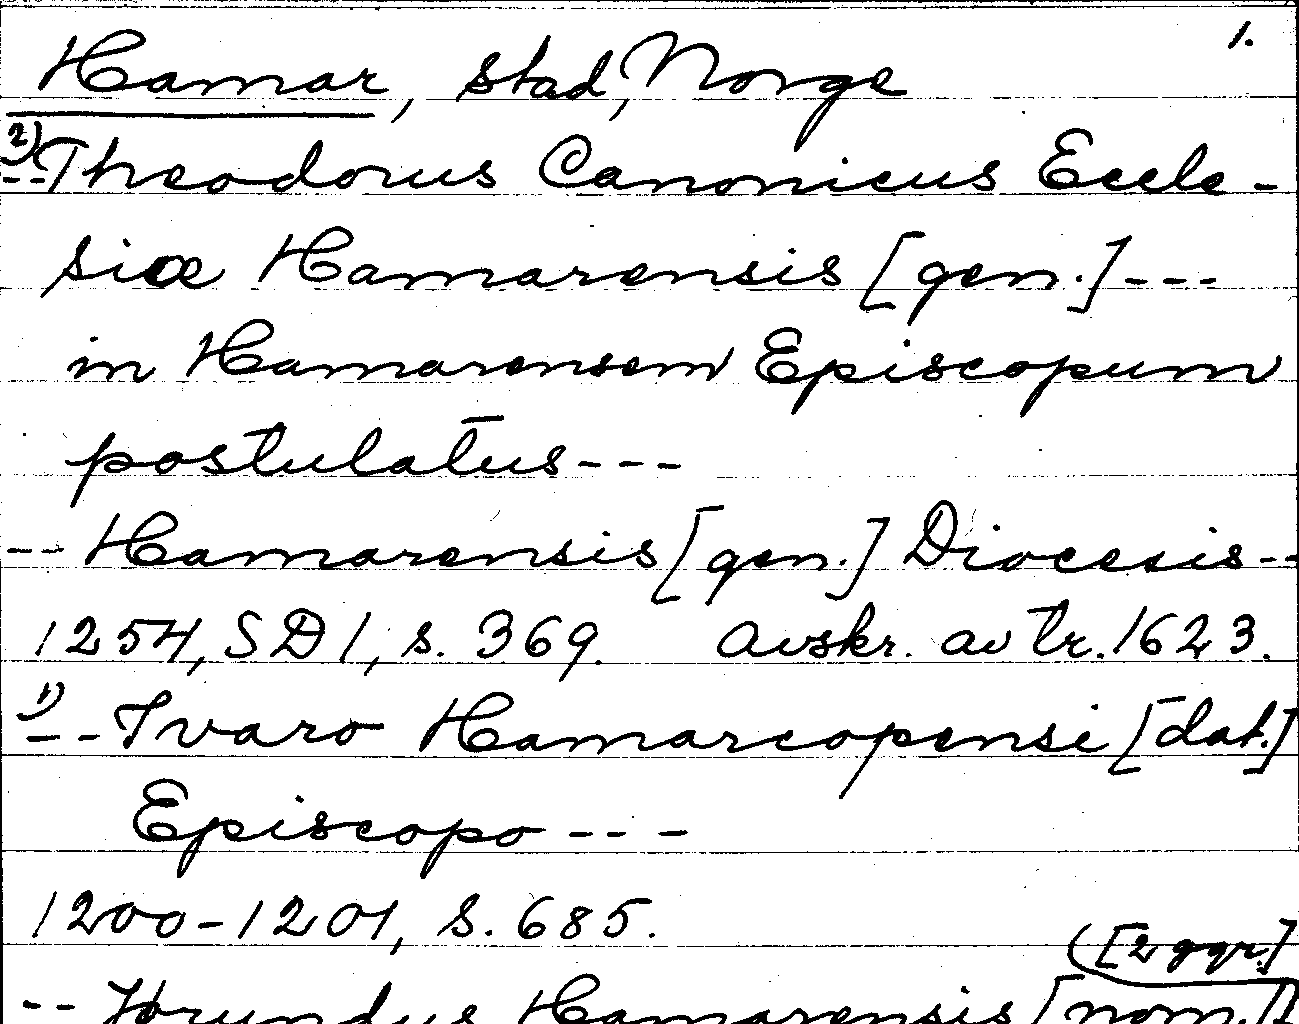 1.
Hamar, stad, Norge
2)
--Theodorus Canonicus Eccle-
siæ Hamarensis [gen.]---
in Hamarensem Episcopum
postulatus---
-- Hamarensis [gen.] Diocesis--
1254, SD 1, s. 369. avskr. av tr. 1623.
1)
-- Ivaro Hamarcopensi [dat.]
Episcopo ---
1200-1201, s. 685.
([2 ggr.]
-- Hamarensis [nom.]